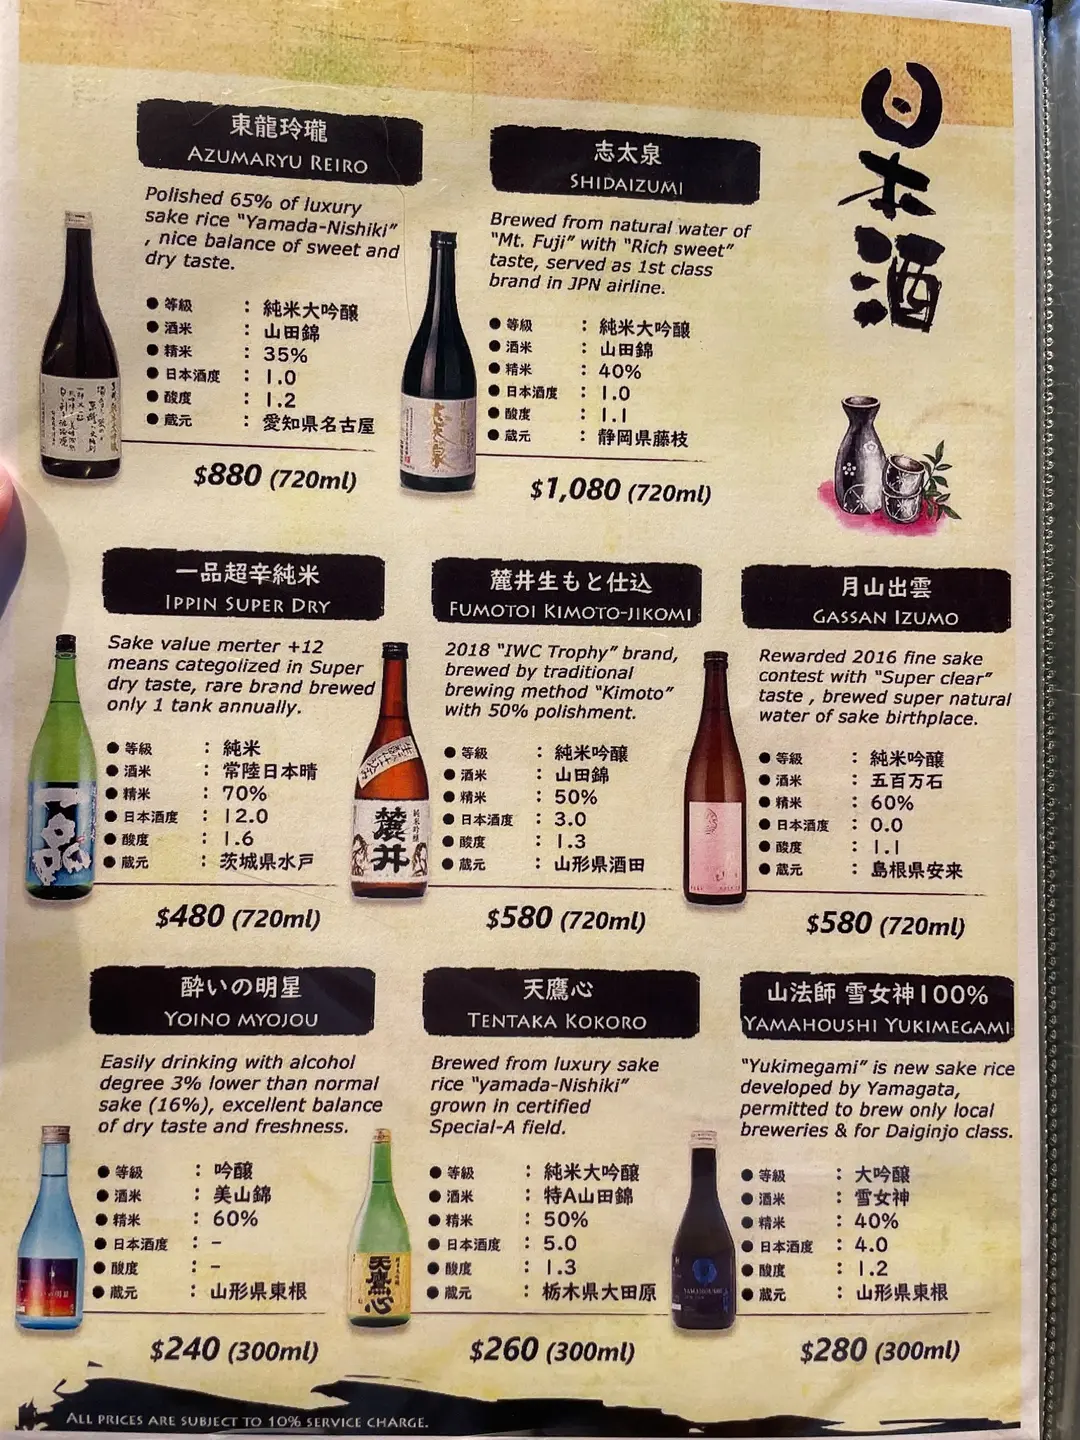 日本酒
東龍玲瓏
AZUMARYU REIRO
Polished 65% of luxury
sake rice "Yamada-Nishiki"
, nice balance of sweet and
dry taste.
● 等級 : 純米大吟醸
● 酒米 : 山田錦
● 精米 : 35%
● 日本酒度 : 1.0
● 酸度 : 1.2
● 蔵元 : 愛知県名古屋
$880 (720ml)
志太泉
SHIDAIZUMI
Brewed from natural water of
"Mt. Fuji" with "Rich sweet"
taste, served as 1st class
brand in JPN airline.
● 等級 : 純米大吟醸
● 酒米 : 山田錦
● 精米 : 40%
● 日本酒度 : 1.0
● 酸度 : 1.1
● 蔵元 : 静岡県藤枝
$1,080 (720ml)
志太泉
一品超辛純米
IPPIN SUPER DRY
Sake value merter +12
means categolized in Super
dry taste, rare brand brewed
only 1 tank annually.
● 等級 : 純米
● 酒米 : 常陸日本晴
● 精米 : 70%
● 日本酒度 : 12.0
● 酸度 : 1.6
● 蔵元 : 茨城県水戸
$480 (720ml)
一品
麓井生もと仕込
FUMOTOI KIMOTO-JIKOMI
2018 "IWC Trophy" brand,
brewed by traditional
brewing method "Kimoto"
with 50% polishment.
● 等級 : 純米吟醸
● 酒米 : 山田錦
● 精米 : 50%
● 日本酒度 : 3.0
● 酸度 : 1.3
● 蔵元 : 山形県酒田
$580 (720ml)
麓井
純米吟醸
月山出雲
GASSAN IZUMO
Rewarded 2016 fine sake
contest with "Super clear"
taste , brewed super natural
water of sake birthplace.
● 等級 : 純米吟醸
● 酒米 : 五百万石
● 精米 : 60%
● 日本酒度 : 0.0
● 酸度 : 1.1
● 蔵元 : 島根県安来
$580 (720ml)
酔いの明星
YOINO MYOJOU
Easily drinking with alcohol
degree 3% lower than normal
sake (16%), excellent balance
of dry taste and freshness.
● 等級 : 吟醸
● 酒米 : 美山錦
● 精米 : 60%
● 日本酒度 : -
● 酸度 : -
● 蔵元 : 山形県東根
$240 (300ml)
酔いの明星
天鷹心
TENTAKA KOKORO
Brewed from luxury sake
rice "yamada-Nishiki"
grown in certified
Special-A field.
● 等級 : 純米大吟醸
● 酒米 : 特A山田錦
● 精米 : 50%
● 日本酒度 : 5.0
● 酸度 : 1.3
● 蔵元 : 栃木県大田原
$260 (300ml)
天鷹心
山法師 雪女神100%
YAMAHOUSHI YUKIMEGAMI
"Yukimegami" is new sake rice
developed by Yamagata,
permitted to brew only local
breweries & for Daiginjo class.
● 等級 : 大吟醸
● 酒米 : 雪女神
● 精米 : 40%
● 日本酒度 : 4.0
● 酸度 : 1.2
● 蔵元 : 山形県東根
$280 (300ml)
YAMAHOUSHI
ALL PRICES ARE SUBJECT TO 10% SERVICE CHARGE.